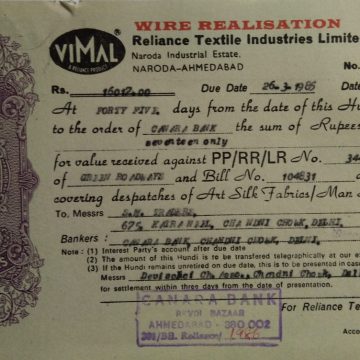 WIRE REALISATION
VIMAL
A RELIANCE PRODUCT
Reliance Textile Industries Limite
Naroda Industrial Estate,
NARODA-AHMEDABAD
Rs. Due Date 26-3-1986 Date
At FORTY FIVE, days from the date of this Hu
to the order of CANARA BANK the sum of Rupees
seventeen only
for value received against PP/RR/LR No. 344
of GREEN ROADWAYS and Bill No. 104831 d
covering despatches of Art Silk Fabrics/Man M
To Messrs S.M. TRADERS,
675, KATRA NEEL, CHANDNI CHOWK, DELHI.
Bankers : CANARA BANK, CHANDNI CHOWK, DELHI,
Note : (1) Interest Party's account after due date
(2) The amount of this Hundi is to be transferred telegraphically at our e
(3) If the Hundi remains unretired on due date, this is to be presented in case
Messrs Chandni Chowk, Del
for settlement within three days from the date of presentation.
For Reliance Te
CANARA BANK
REVDI BAZAAR
AHMEDABAD - 380 002
1986
Accou